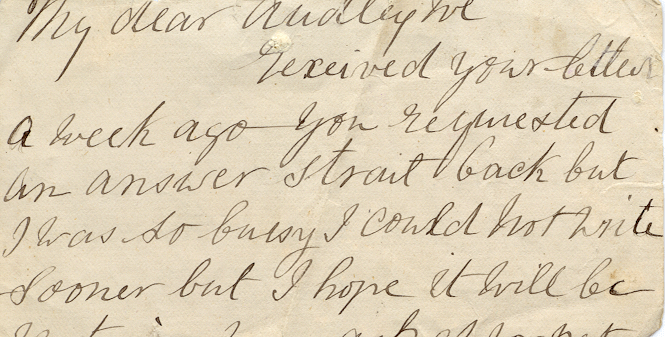 My dear Audley we
received your letter
a week ago you requested
an answer strait back but
I was so buisy I could not write
sooner but I hope it will be